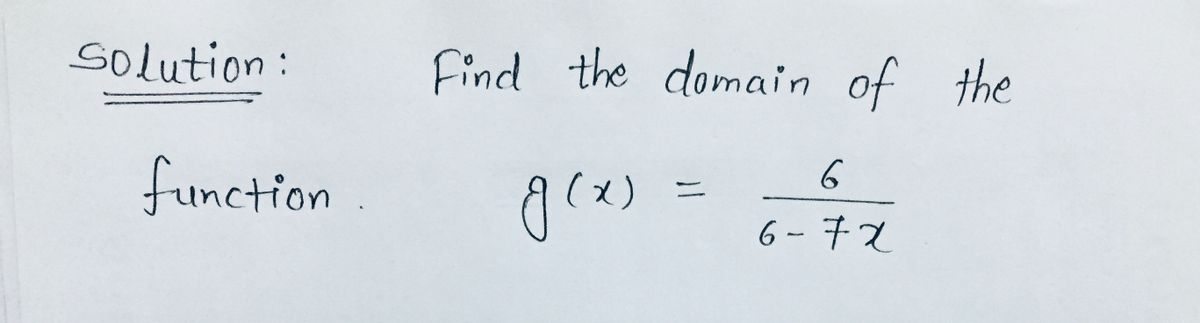 Solution: Find the domain of the
function. g(x) = 6 / 6-7x